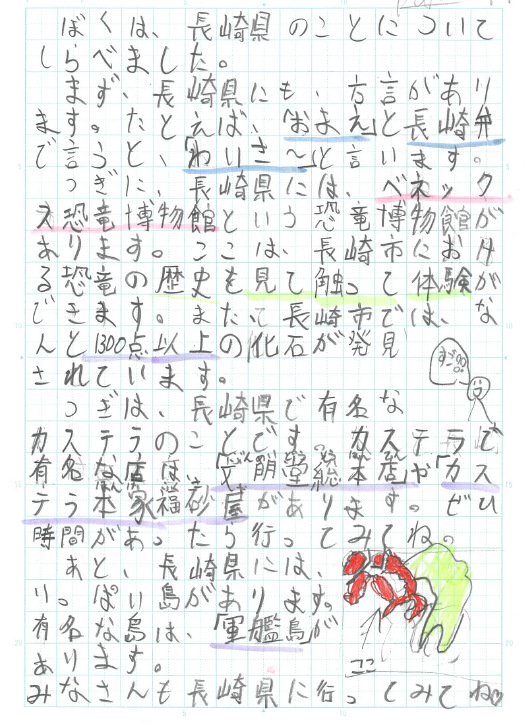 ぼくは、長崎県のことについて
しらべました。
まず、長崎県にも、方言があり
ます。たとえば、「おまえ」と長崎弁
で言うと、「わいさ〜」と言います。
つぎに、長崎県には、ベネック
ス恐竜博物館という恐竜博物館が
あります。ここは、長崎市におけ
る恐竜の歴史を見て触って体験が
できます。また、長崎市では、な
んと1300点以上の化石が発見
されています。
すごーい
つぎは、長崎県で有名な
カステラのことです。カステラで
有名な店は、「文明堂総本店」や「カス
テラ本家福砂屋」があります。ぜひ
時間があったら行ってみてね。
あと、長崎県には、
いっぱい島があります。
有名な島は、「軍艦島」が
あります。
ココ
みなさんも長崎県に行ってみてね♡